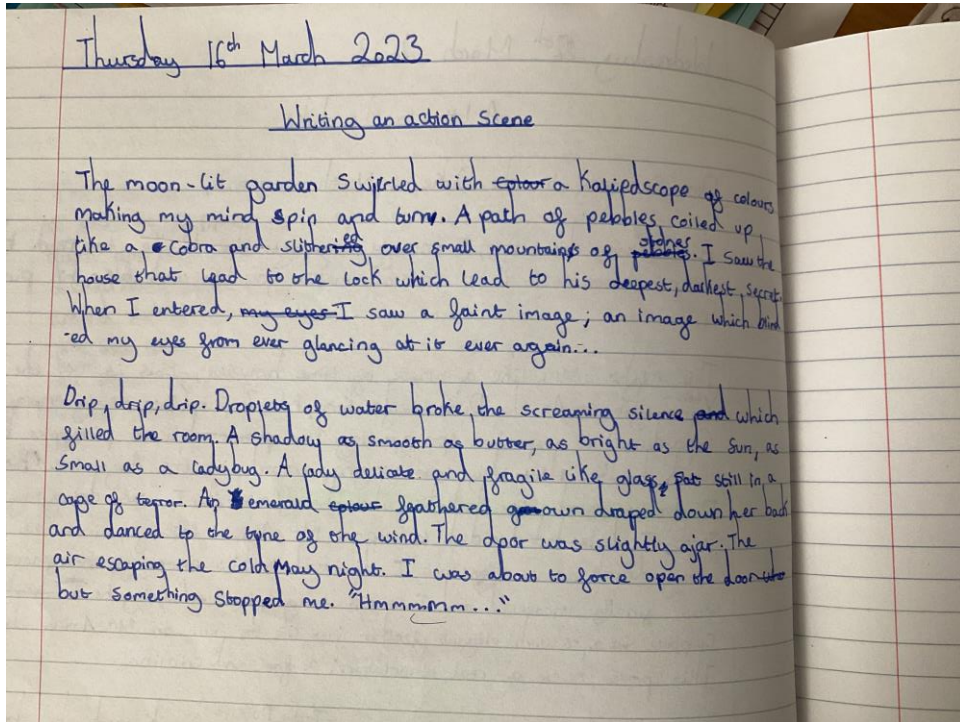 Thursday 16th March 2023
Writing an action scene
The moon-lit garden swirled with a Kaliedscope of colours
making my mind spin and turn. A path of pebbles coiled up
like a cobra and slithered over small mountains of stones. I saw the
house that lead to the lock which lead to his deepest, darkest, secret.
When I entered, I saw a faint image; an image which blind
-ed my eyes from ever glancing at it ever again...
Drip, drip, drip. Droplets of water broke, the screaming silence which
filled the room. A shadow as smooth as butter, as bright as the sun, as
small as a ladybug. A lady delicate and fragile like glass, sat still in a
cage of terror. An emerald feathered gown draped down her back
and danced to the tune of the wind. The door was slightly ajar. The
air escaping the cold May night. I was about to force open the door
but something stopped me. "Hmmmmm..."